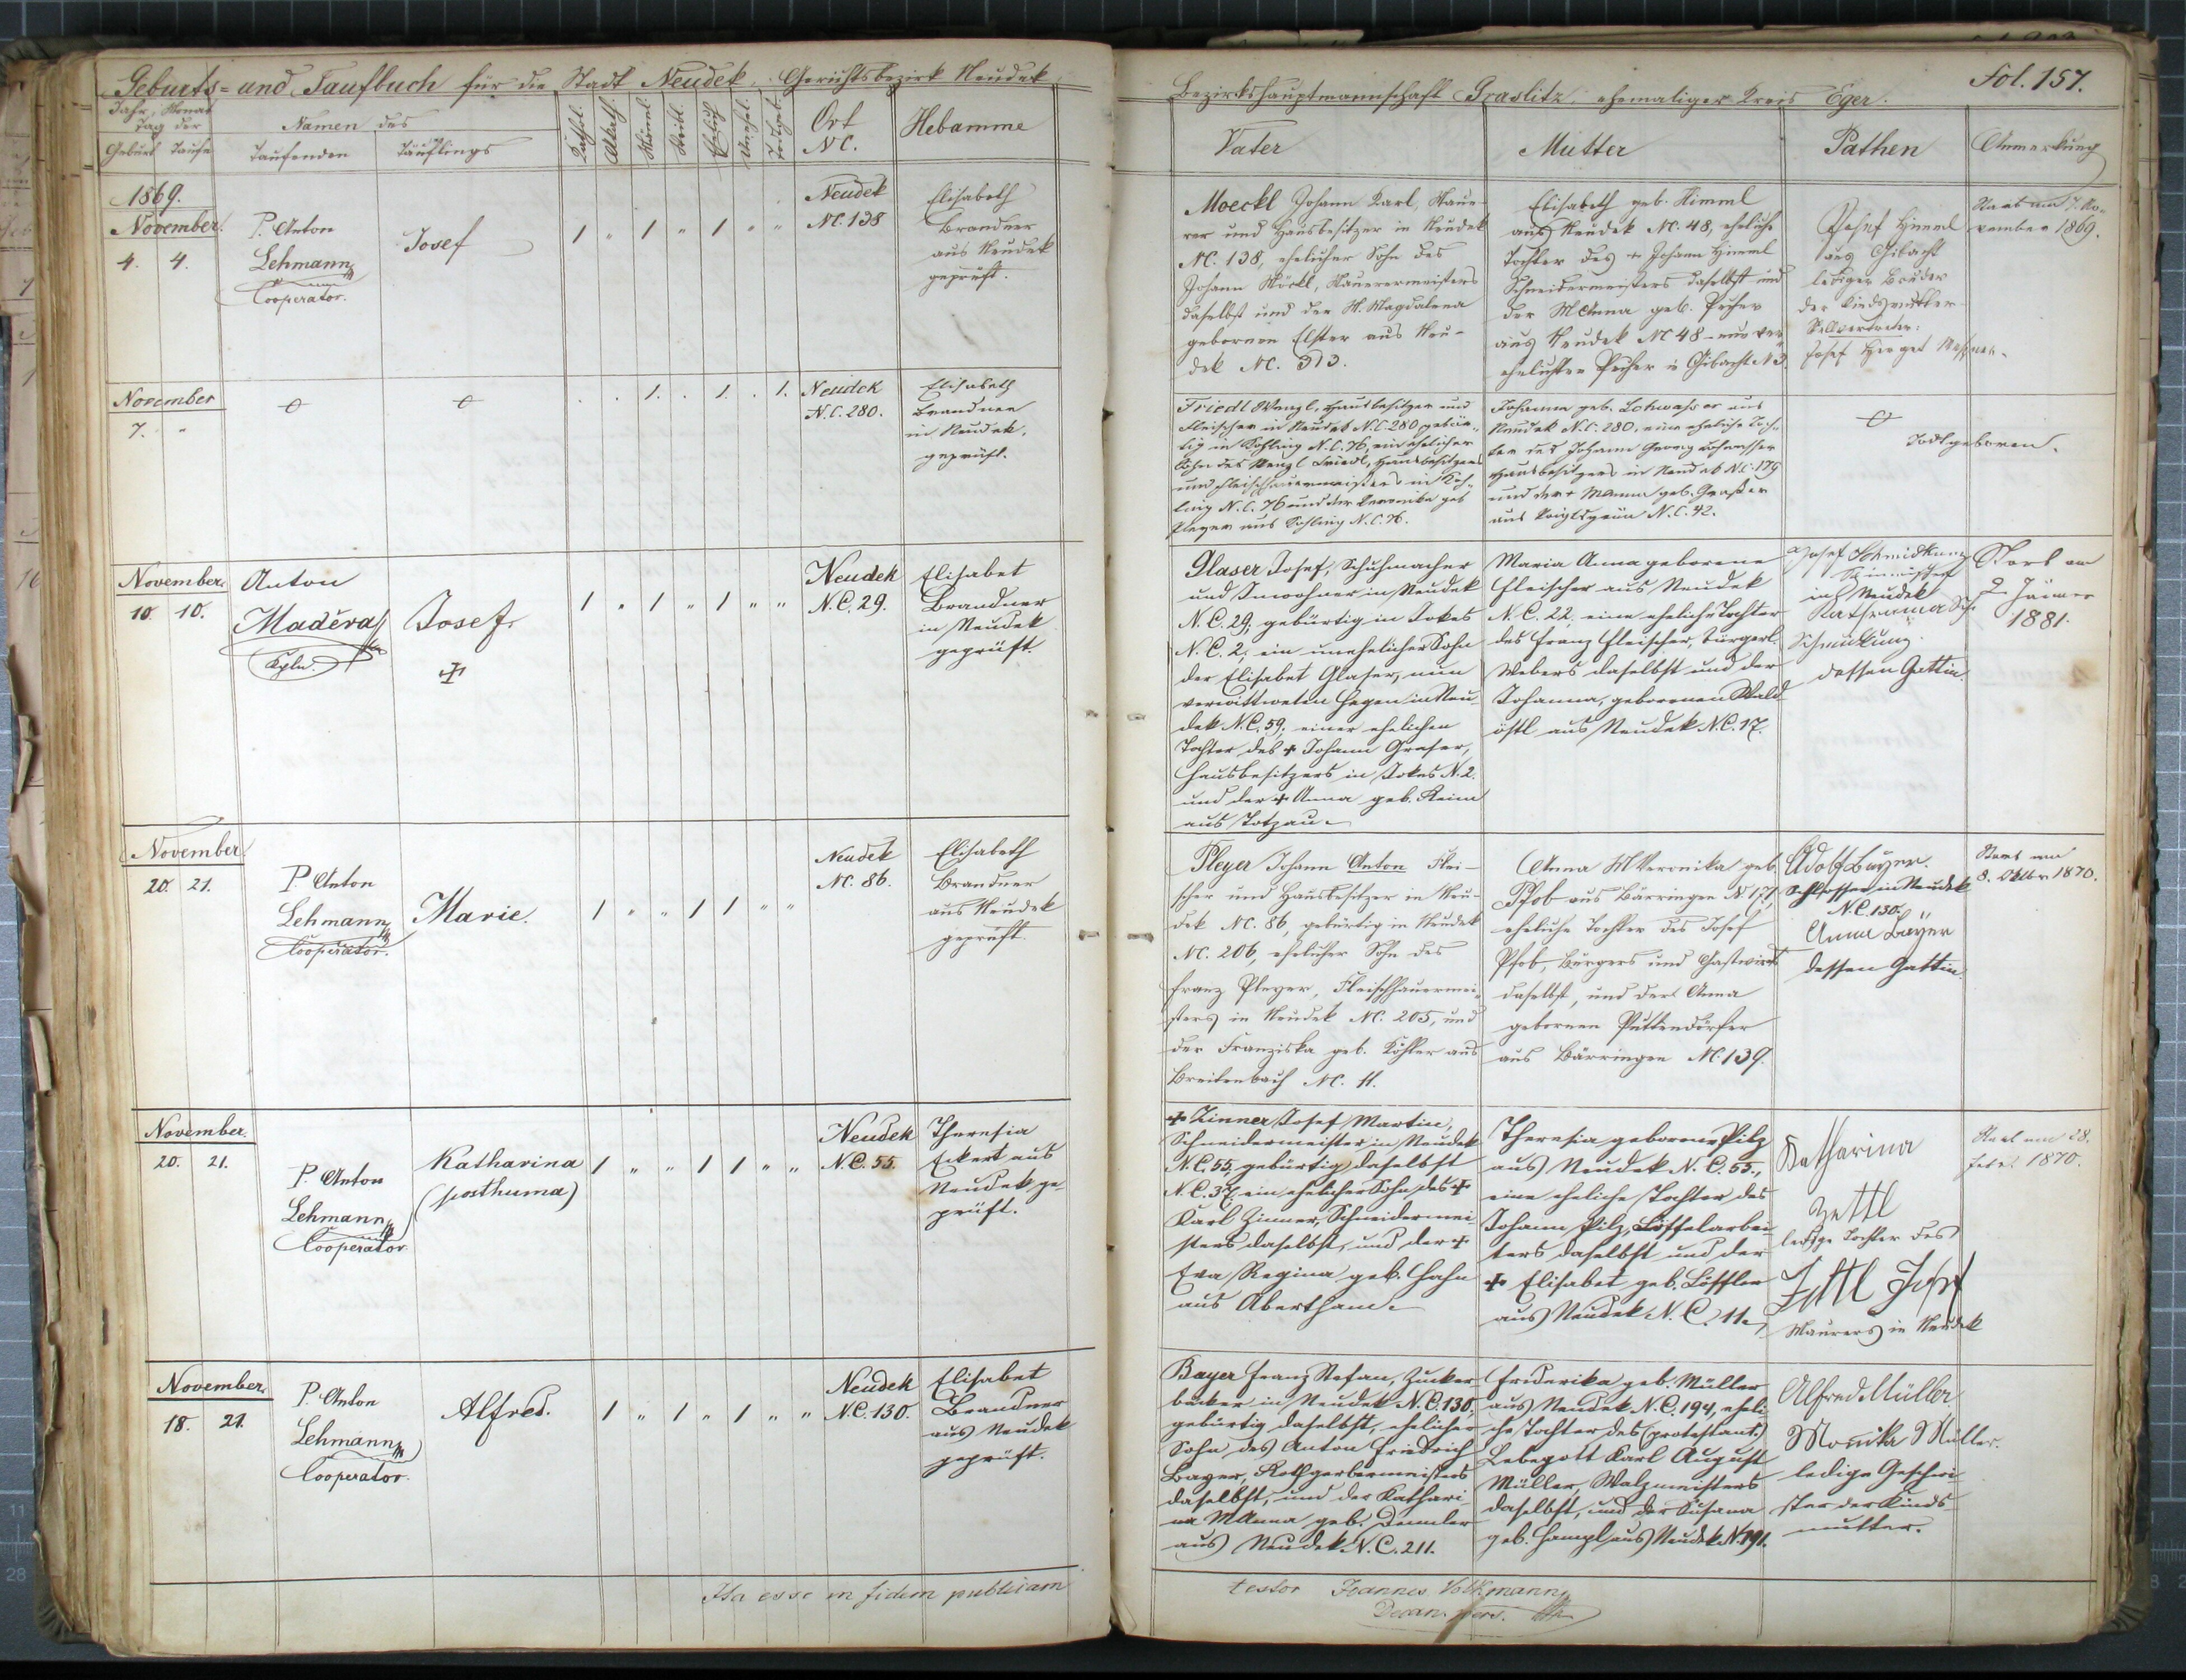 Geburts- und Taufbuch für die Stadt Neudek, Gerichtsbezirk Neudek
Bezirkshauptmannschaft Graslitz, ehemaliger Kreis Eger.
Fol. 157.
Jahr, Monat
Tag der
Geburt Taufe
Namen des
Taufenden Täuflings
Kathol.
Männl.
Weibl.
Ehelich
Unehel.
Todtgeb.
Ort
NC.
Hebamme
Vater
Mutter
Pathen
Anmerkung
1869.
November.
4. 4.
P. Anton
Lehmann
Cooperator.
Josef
1 " 1 " 1 " "
Neudek
NC. 138
Elisabeth
Brandner
aus Neudek
geprüft.
Moeckl Johann Karl, Mau-
rer und Hausbesitzer in Neudek
NC. 138, ehelicher Sohn des
Johann Möckl, Maurermeisters
daselbst und der M. Magdalena
gebornen Elster aus Neu-
dek NC. 313.
Elisabeth geb. Himml
aus Neudek NC. 48, eheliche
Tochter des + Johann Himml
Schneidermeisters daselbst und
der M Anna geb.
aus Neudek NC 48
Josef Himml
aus Gibacht
lediger Bruder
der Kindsmutter
Stellvertreter:
Josef Herget
Starb am 7. No-
vember 1869.
November
7. "
. . 1. . 1. . 1.
Neudek
N.C. 280.
Elisabeth
Brandner
in Neudek.
geprüft.
Friedl Wenzl, Hausbesitzer und
Fleischer in Neudek N.C. 280 gebür-
tig in Kohling N.C. 76, ein ehelicher
Sohn des Wenzl Friedl, Hausbesitzers
und Fleischhauermeisters in Koh-
ling N.C. 76 und der Veronika geb.
Pleyer aus Kohling N.C. 76.
Johanna geb. Lohwasser aus
Neudek N.C. 280, eine eheliche Toch-
ter des Johann Georg Lohwasser
Hausbesitzers in Neudek N.C. 179
und der + M Anna geb. Grasser
aus Voigtsgrün N.C. 42.
Todtgeboren.
November.
10. 10.
Anton
Maděra
Kpln.
Josef.
1 " 1 " 1 " "
Neudek
N.C. 29.
Elisabet
Brandner
in Neudek
geprüft.
Glaser Josef, Schuhmacher
und Inwohner in Neudek
N.C. 29; gebürtig in Tokes
N.C. 2, ein unehelicher Sohn
der Elisabet Glaser, nun
verwittweten Hagen in Neu-
dek N.C. 59; einer ehelichen
Tochter des + Johann Graser,
Hausbesitzers in Tokes N. 2.
und der + Anna geb. Keim
aus Totzau.
Maria Anna geborene
Fleischer aus Neudek
N.C. 22, eine eheliche Tochter
des Franz Fleischer, bürgerl.
Webers daselbst und der
Johanna, geborenen Wald-
östl aus Neudek N.C. 17.
Josef Schmidkunz
in Neudek
Katharina
Schmidkunz.
dessen Gattin.
Starb am
2. Jänner
1881.
November
20. 21.
P. Anton
Lehmann
Cooperator.
Marie.
1 " " 1 1 " "
Neudek
NC. 86.
Elisabeth
Brandner
aus Neudek
geprüft.
Pleyer Johann Anton Flei-
scher und Hausbesitzer in Neu-
dek NC. 86, gebürtig in Neudek
NC. 206, ehelicher Sohn des
Franz Pleyer, Fleischhauermei-
sters in Neudek NC. 205, und
der Franziska geb. Köhler aus
Breitenbach NC. 11.
Anna M Veronika geb.
Pfob aus Bärringen N. 171,
eheliche Tochter des Josef
Pfob, Bürgers und Gastwirts
daselbst, und der Anna
gebornen Puttendörfer
aus Bärringen NC. 139.
Adolf Bayer.
Schlosser in Neudek
N.C. 130.
Anna Bayer
dessen Gattin.
Starb am
8. Oktbr 1870.
November.
20. 21.
P. Anton
Lehmann
Cooperator.
Katharina
(posthuma)
1 " " 1 1 " "
Neudek
N.C. 55.
Theresia
Eckert aus
Neudek ge-
prüft.
+ Zinner Josef Martin,
Schneidermeister in Neudek
N.C. 55, gebürtig daselbst
N.C. 37, ein ehelicher Sohn des +
Karl Zinner, Schneidermei-
sters daselbst, und der +
Eva Regina geb. Hahn
aus Abertham.
Theresia geborene Pilz
aus Neudek N.C. 55.,
eine eheliche Tochter des
Johann Pilz, Löffelarbei-
ters daselbst und der
+ Elisabet geb. Löffler
aus Neudek N.C. 11.
Katharina
Zettl
ledige Tochter des
Zettl Josef
Maurers in Neudek
Starb am 28.
Febr. 1870.
November.
18. 21.
P. Anton
Lehmann
Cooperator.
Alfred.
1 " 1 " 1 " "
Neudek
N.C. 130.
Elisabet
Brandner
aus Neudek
geprüft.
Bayer Franz Stefan, Zucker-
bäcker in Neudek N.C. 130,
gebürtig daselbst, ehelicher
Sohn des Anton Friedrich
Bayer, Rothgerbermeisters
daselbst, und der Kathari-
na M Anna geb. Demler
aus Neudek N.C. 211.
Friderika geb. Müller
aus Neudek N.C. 194, eheli-
che Tochter des (protestant.)
Lebegott Karl August
Müller, Walzmeisters
daselbst, und der Susana
geb. Hampl aus Neudek N. 191.
Alfred Müller
Monika Müller.
ledige Geschwi-
ster der Kinds-
mutter.
Ita esse in fidem publicam
testor Joannes Volkmann
Decan. pers.